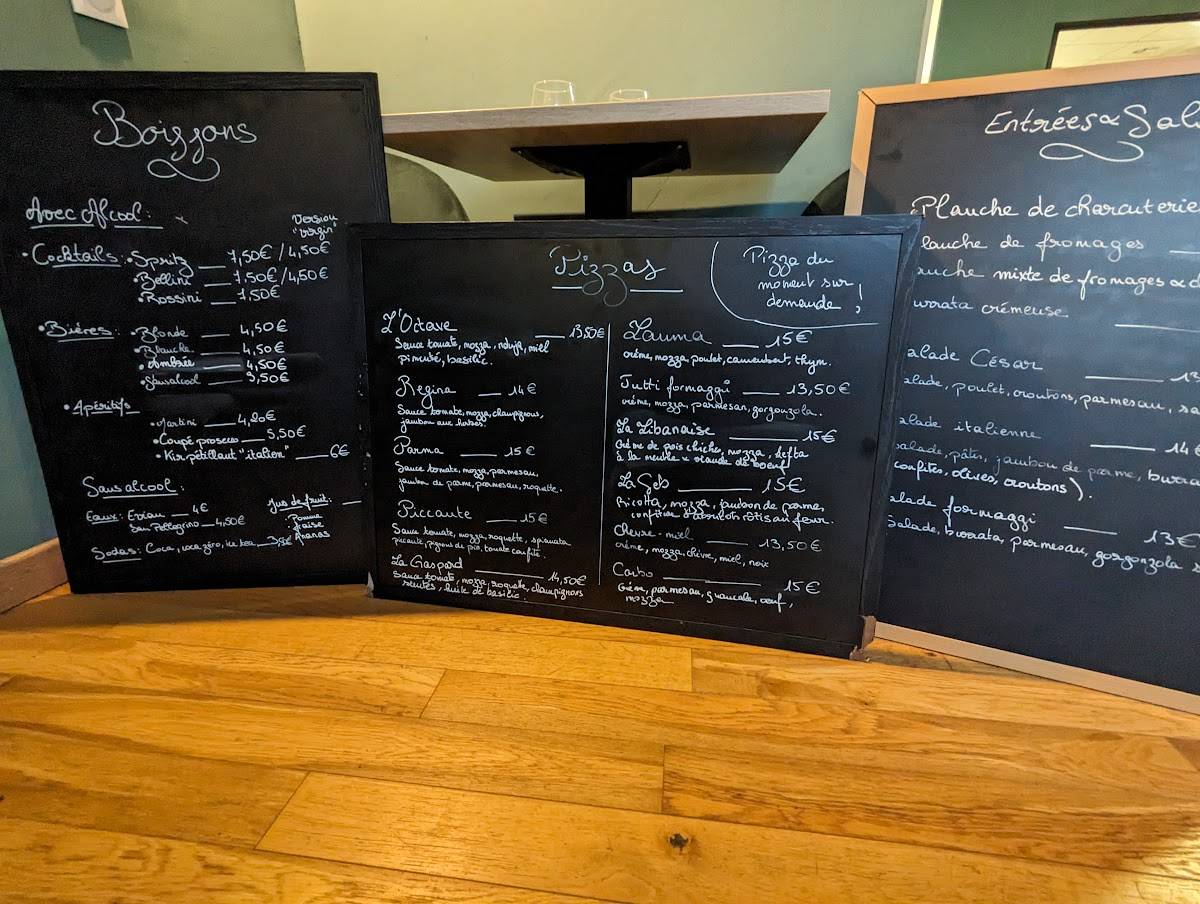 Boissons
Avec Alcool:
Version "virgin"
• Cocktails: • Spritz 7,50€ / 4,50€
• Bellini 7,50€ / 4,50€
• Rossini 7,50€
• Bières: • Blonde 4,50€
• Blanche 4,50€
• Ambrée 4,50€
• Sans alcool 3,50€
• Apéritifs
• Martini 4,20€
• Coupe prosecco 5,50€
• Kir pétillant "italien" 6€
Sans alcool:
Eaux: Evian 4€
San Pellegrino 4,50€
Sodas: Coca, coca zéro, ice tea
Jus de fruit:
Pomme
Fraise
Ananas
Pizzas
Pizza du
moment sur
demande !
L'Octave 13,50€
Sauce tomate, mozza, nduja, miel
pimenté, basilic.
Regina 14€
Sauce tomate, mozza, champignons,
jambon aux herbes.
Parma 15€
Sauce tomate, mozza, parmesan,
jambon de parme, parmesan, roquette.
Piccante 15€
Sauce tomate, mozza, roquette, spianata
picante, pignons de pin, tomate confite.
La Gaspard 14,50€
Sauce tomate, mozza, roquette, champignons
huile de basilic.
Lauma 15€
crème, mozza, poulet, camembert, thym.
Tutti formaggi 13,50€
crème, mozza, parmesan, gorgonzola.
La Libanaise 15€
Crème de pois chiches, mozza, kefta
à la menthe & viande de boeuf
La Seb 15€
Ricotta, mozza, jambon de parme,
confiture d'abricot rôtis au four.
Chèvre-miel 13,50€
crème, mozza, chèvre, miel, noix
Carbo 15€
Crème, parmesan, guanciale, oeuf,
mozza
Entrées & Sal
Planche de charcuterie
lanche de fromages
anche mixte de fromages & c
urrata crémeuse
alade César 13
alade, poulet, croutons, parmesan, sa
alade italienne 14€
salade, pâtes, jambon de parme, burra
confites, olives, croutons).
alade formaggi 13€
Salade, burrata, parmesan, gorgonzola